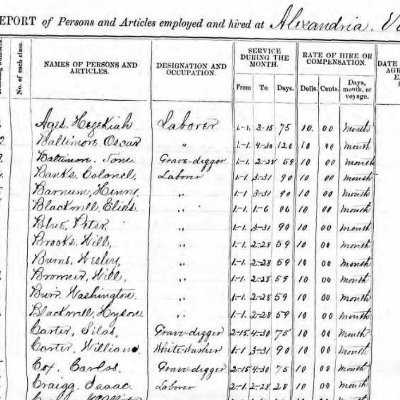 REPORT of Persons and Articles employed and hired at Alexandria, Va
No. of each class. NAMES OF PERSONS AND ARTICLES. DESIGNATION AND OCCUPATION. SERVICE DURING THE MONTH. From To Days. RATE OF HIRE OR COMPENSATION. Dolls. Cents. Days, month, or voyage. DATE
Ages. Hezekiah Laborer 1-1. 3-15 75 10. 00 Month
Baltimore, Oscar „ 1-1. 4-30 120 10 00 Month
Baltimore, Tone Grave-digger 1-1. 2-28 59 10 00 Month
Banks, Colonel, Labor 1-1. 3-31 90 10 00 Month
Barnum, Henry, „ 1-1 3-31 90 10 00 Month
Blackwell, Elias, „ 1-1 1-6 06 10 00 Month
Blue, Peter „ 1-1 3-31 90 10 00 Month
Brooks, Will, „ 1-1 2-28 59 10 00 Month
Burns, Wesley, „ 1-1 2-28 59 10 00 Month
Will, „ 1-1 2-28 59 10 00 Month
Burr, Washington, „ 1-1 2-28 59 10 00 Month
Blackwell, Hyson, „ 1-1 2-28 59 10 00 Month
Carter, Silas, Grave-digger 2-15 4-30 75 10 00 Month
Carter, William, White washer 1-1 3-31 90 10 00 Month
Cox, Carlos, Grave-digger 2-15 4-30 75 10 00 Month
Craigg, Isaac, Labor 2-1 2-28 28 10 00 Month